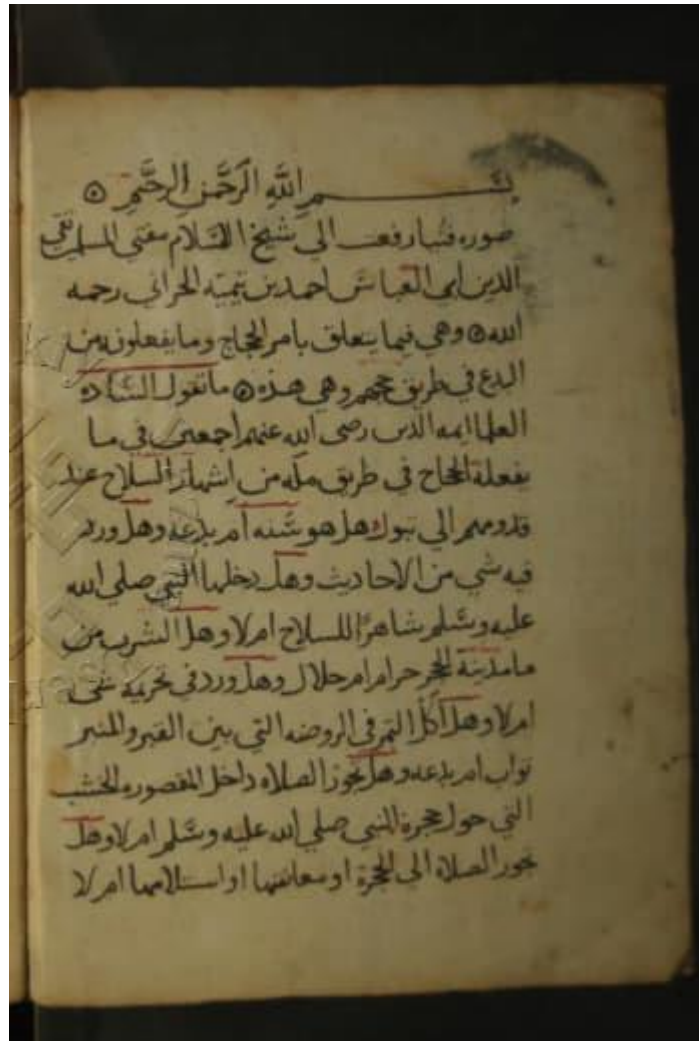 بســــــم اللَّهِ الرَّحمَن الرحَّيمِ ۞
صوره فتيا رفعت الي شيخ الاسَّلام مفتي المسلمين تقي
الدين ابى العبَّاس احمد بن تيميه الحراني رحمه
الله ۞ وهي فيما يتعلق بامر الحجاج وما يفعلونه من
البدع في طريق حجهم وهي هذه ۞ ما تقول السَّاده
العلما ايمه الدين رضى الله عنهم اجمعين في ما
يفعله الحجاج في طريق مكه من اشهار السلاح عند
قدومهم الي تبوك هل هو سَّنه ام بدعه وهل ورد
فيه شي من الاحاديث وهل دخلها النبي صلي الله
عليه وسَّلم شاهرًا للسلاح ام لا وهل الشرب من
ما مدينة الحجر حرام ام حلال وهل ورد في تحريمه شي
ام لا وهل اكل التمر في الروضه التي بين القبر والمنبر
ثواب ام بدعه وهل يجوز الصلاه داخل المقصوره الخشب
التي حول حجرة النبي صلي الله عليه وسَّلم ام لا وهل
تجوز الصلاه الي الحجرة او معانقتها او استلامها ام لا